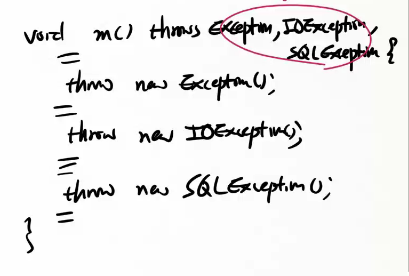 void m() throws Exception, IOException,
SQLException {
=
throw new Exception();
=
throw new IOException();
=
throw new SQLException();
=
}